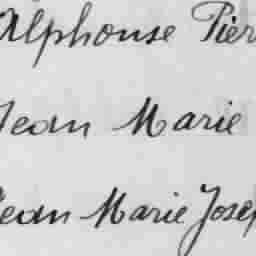 Alphonse Pier
Jean Marie
Jean Marie Josep